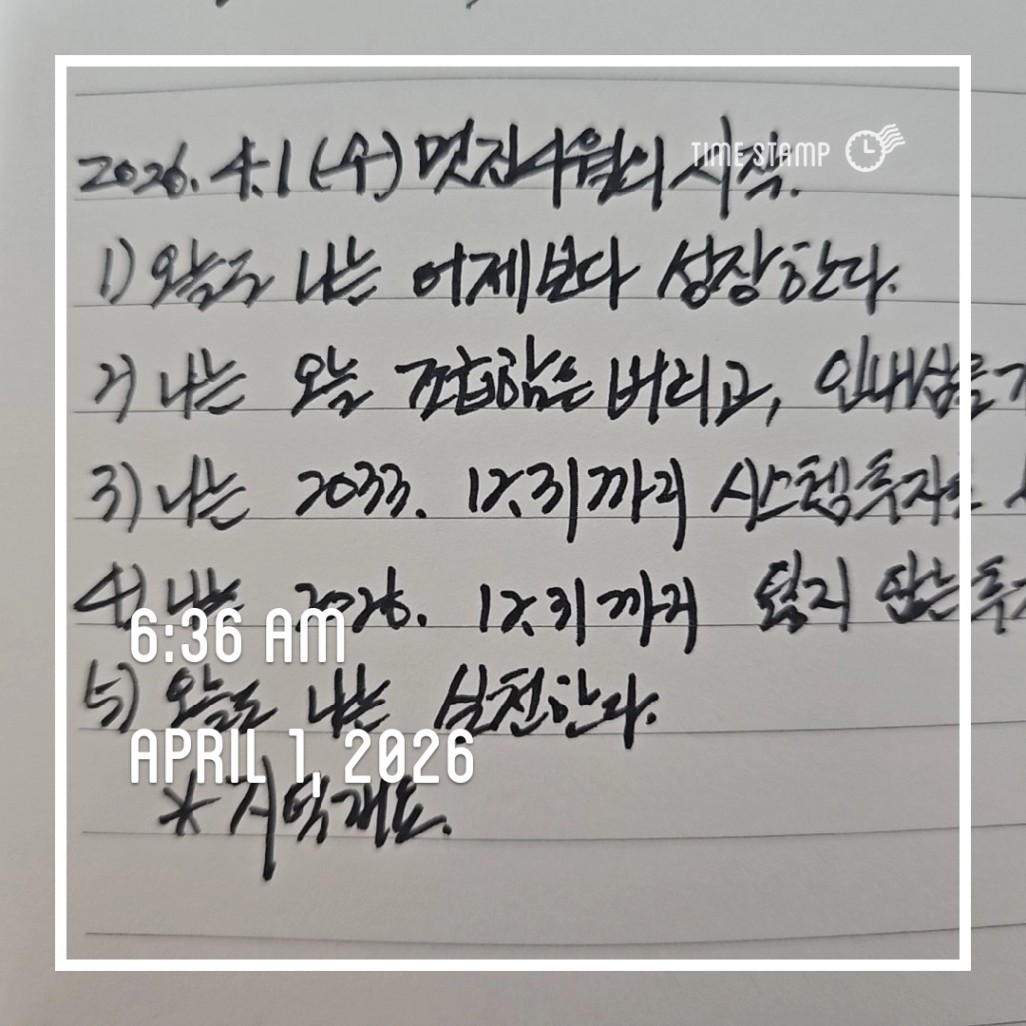 2026. 4.1 (수) 멋진 4월의 시작.
TIME STAMP
1) 오늘도 나는 어제보다 성장한다.
2) 나는 오늘 조급함은 버리고, 인내심을
3) 나는 2033. 12.31까지 시스템투자로
4) 나는 2026. 12.31까지 잃지 않는 투자
6:36 AM
5) 오늘도 나는 실천한다.
APRIL 1, 2026